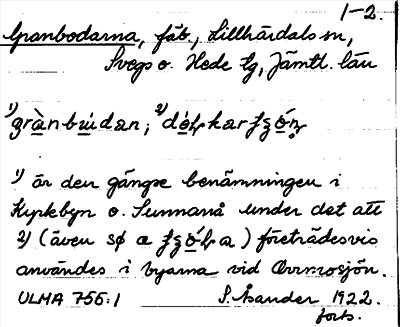 1-2.
Granbodarna, fäb., Lillhärdals sn,
Svegs o. Hede tg, Jämtl. län
1) 2)
1) är den gängse benämningen i
Kyrkbyn o. Sunnanå under det att
2) (även så a) företrädesvis
användes i byarna vid Orrmosjön.
ULMA 755:1 S. Åsander 1922.
forts.